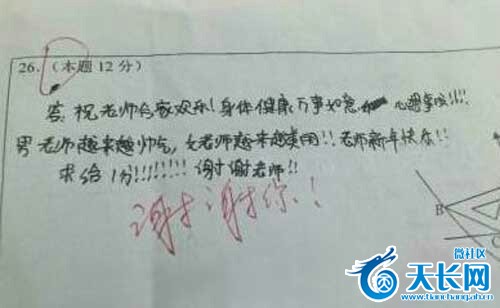 26.(本题12分)
答:祝老师合家欢乐!身体健康,万事如意 心想事成!!!!
男老师越来越帅气,女老师越来越美丽!!老师新年快乐!!
求给1分!!!!!!!! 谢谢老师!!
谢谢你!!
B
C
微社区
天长网
www.tianchangah.cn